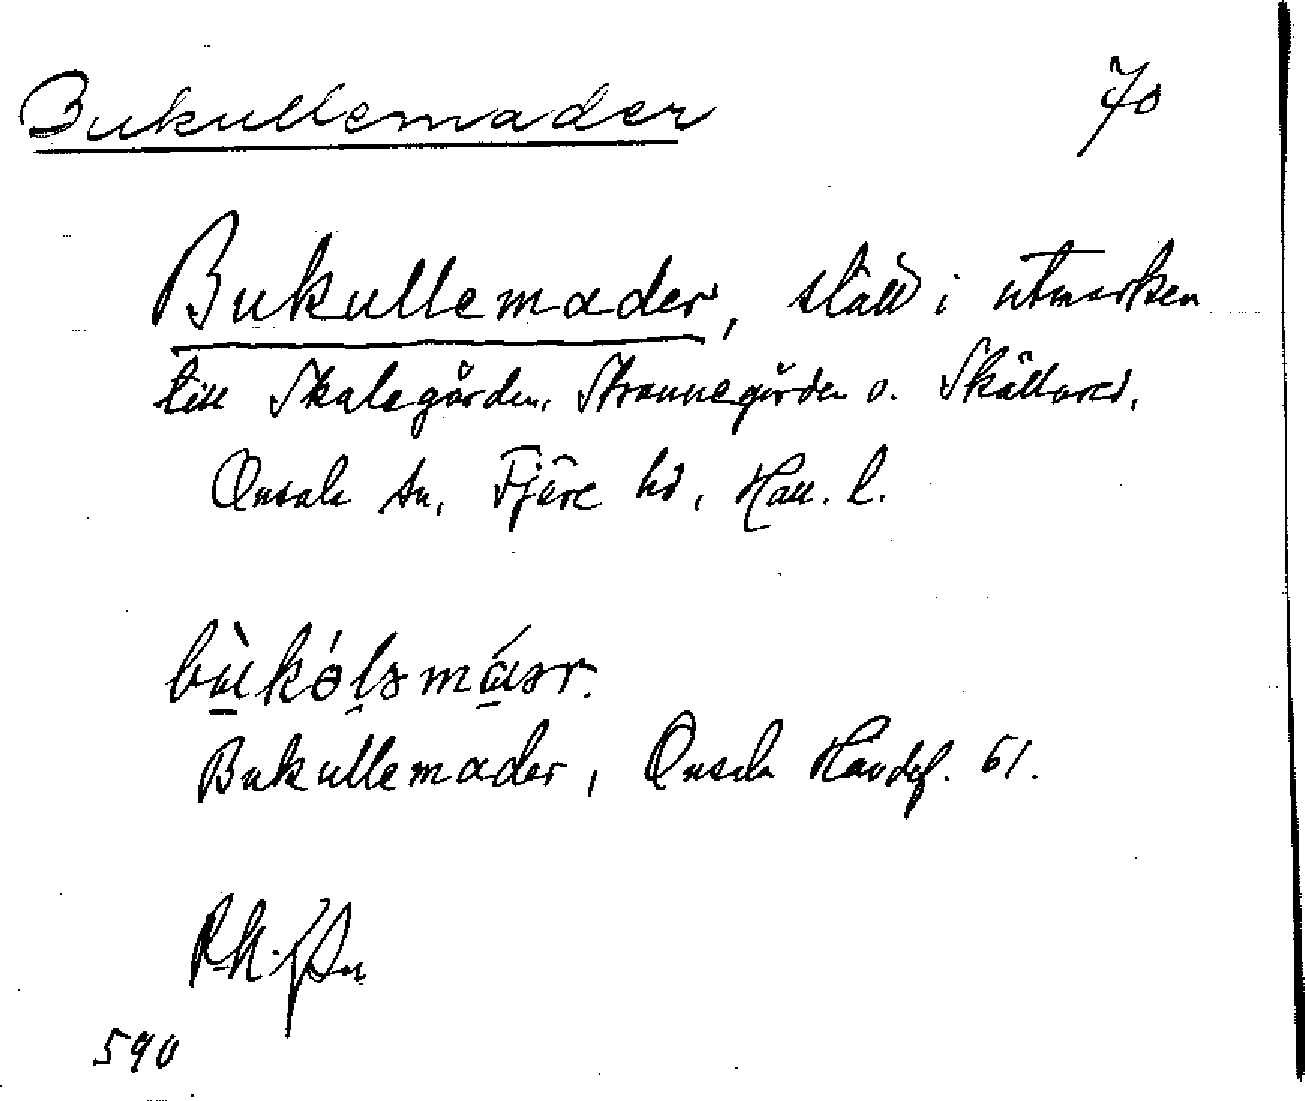 Bukullemader 70
Bukullemader, ställ i utmarken
till Skalegården, Strannegården o. Skällared,
Onsala sn, Fjäre hd, Hall. l.
bùkólsmásr.
Bukullemader, Onsala Handl. 61.
590